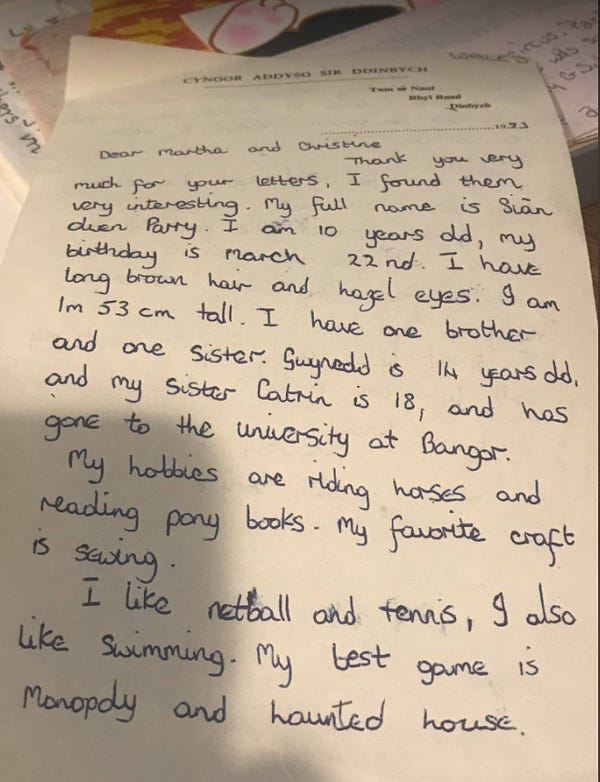 CYNGOR ADDYSG SIR DDINBYCH
Tom or Nant
Rhyl Road
Dinbych
1973
Dear Martha and Christine
Thank you very
much for your letters, I found them
very interesting. My full name is Siân
Owen Parry. I am 10 years old, my
birthday is March 22nd. I have
long brown hair and hazel eyes. I am
1m 53 cm tall. I have one brother
and one sister. Gwynedd is 14 years old,
and my sister Catrin is 18, and has
gone to the university at Bangor.
My hobbies are riding horses and
reading pony books. My favorite craft
is sewing.
I like netball and tennis, I also
like swimming. My best game is
Monopoly and haunted house.